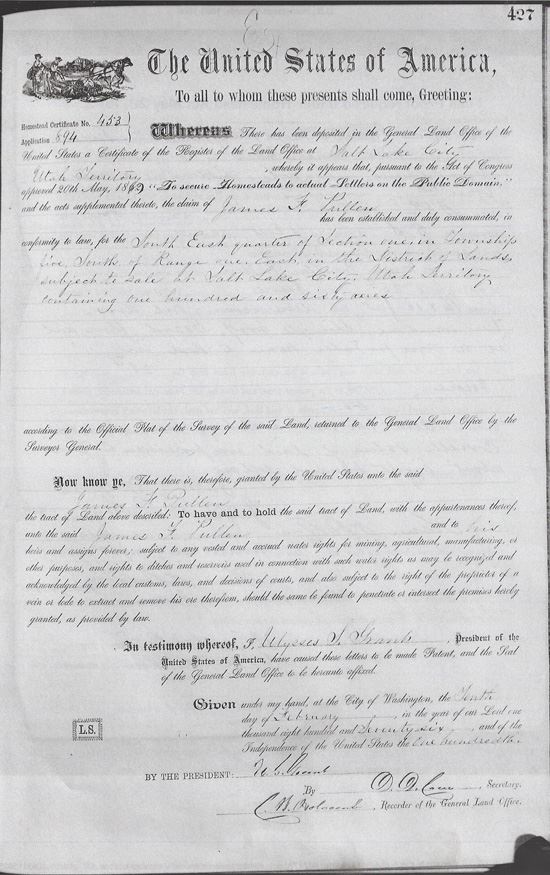 427
The United States of America,
To all to whom these presents shall come, Greeting:
Homestead Certificate No. 453
Application 694
Whereas There has been deposited in the General Land Office of the
United States a Certificate of the Register of the Land Office at Salt Lake City
Utah Territory, whereby it appears that, pursuant to the Act of Congress
approved 20th May, 1862, "To secure Homesteads to actual Settlers on the Public Domain,"
and the acts supplemental thereto, the claim of James F. Pullen
has been established and duly consummated, in
conformity to law, for the South East quarter of Section one, in Township
five, South, of Range one, East, in the District of Lands,
subject to sale at Salt Lake City, Utah Territory
containing one hundred and sixty acres
according to the Official Plat of the Survey of the said Land, returned to the General Land Office by the
Surveyor General.
Now know ye, That there is, therefore, granted by the United States unto the said
James F. Pullen
the tract of Land above described: To have and to hold the said tract of Land, with the appurtenances thereof,
unto the said James F. Pullen and to his
heirs and assigns forever; subject to any vested and accrued water rights for mining, agricultural, manufacturing, or
other purposes, and rights to ditches and reservoirs used in connection with such water rights as may be recognized and
acknowledged by the local customs, laws, and decisions of courts, and also subject to the right of the proprietor of a
vein or lode to extract and remove his ore therefrom, should the same be found to penetrate or intersect the premises hereby
granted, as provided by law.
In testimony whereof, I, Ulysses S. Grant, President of the
United States of America, have caused these letters to be made Patent, and the Seal
of the General Land Office to be hereunto affixed.
Given under my hand, at the City of Washington, the Tenth
day of February, in the year of our Lord one
thousand eight hundred and Seventy six, and of the
Independence of the United States the One hundredth.
L.S.
BY THE PRESIDENT: U. S. Grant
By D. D. Cone, Secretary.
Recorder of the General Land Office.